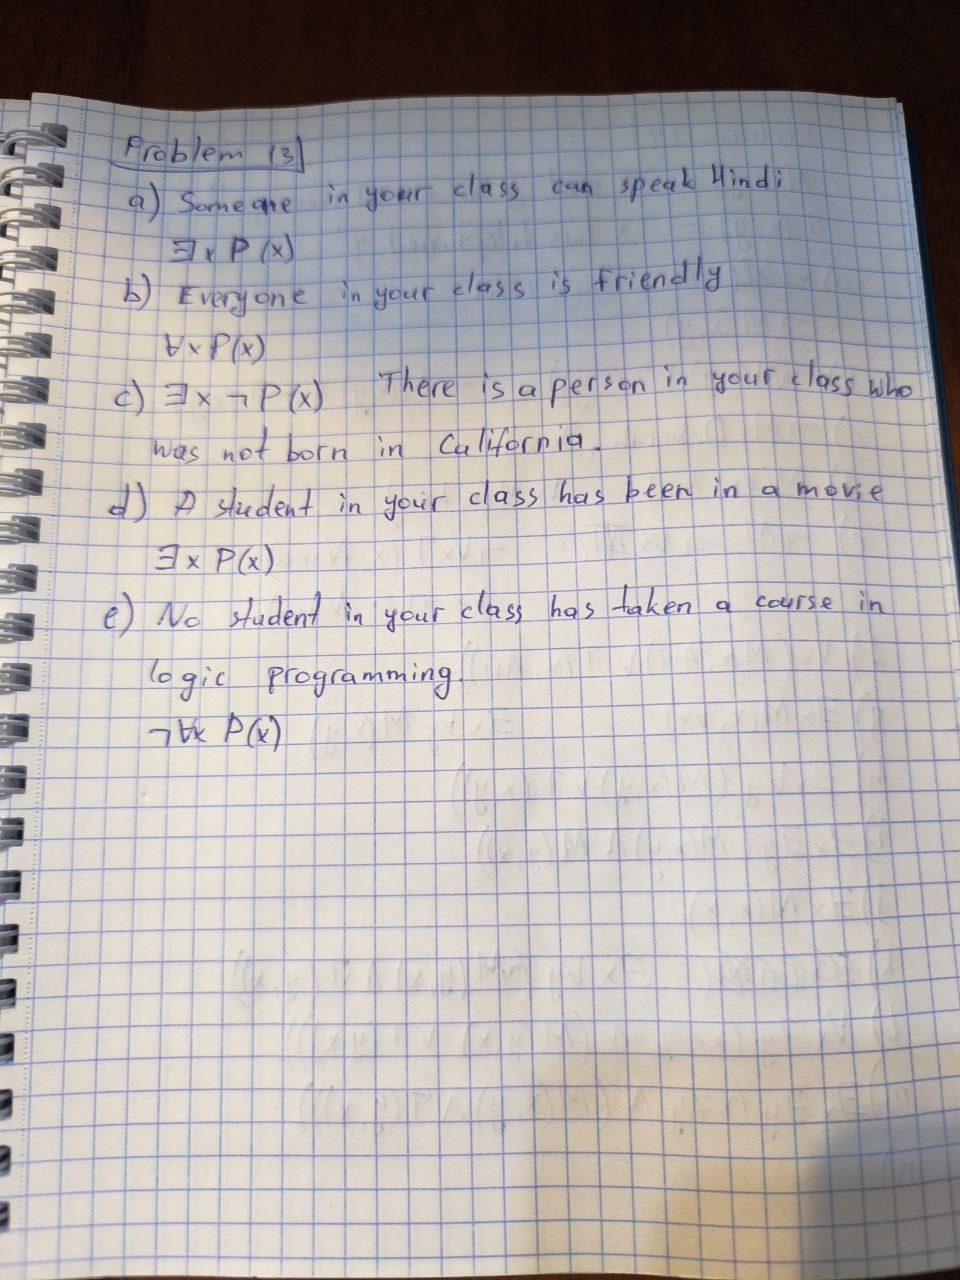 Problem 13
a) Someone in your class can speak Hindi
∃x P(x)
b) Everyone in your class is friendly
∀x P(x)
c) ∃x ¬P(x) There is a person in your class who
was not born in California.
d) A student in your class has been in a movie
∃x P(x)
e) No student in your class has taken a course in
logic programming.
¬∀x P(x)